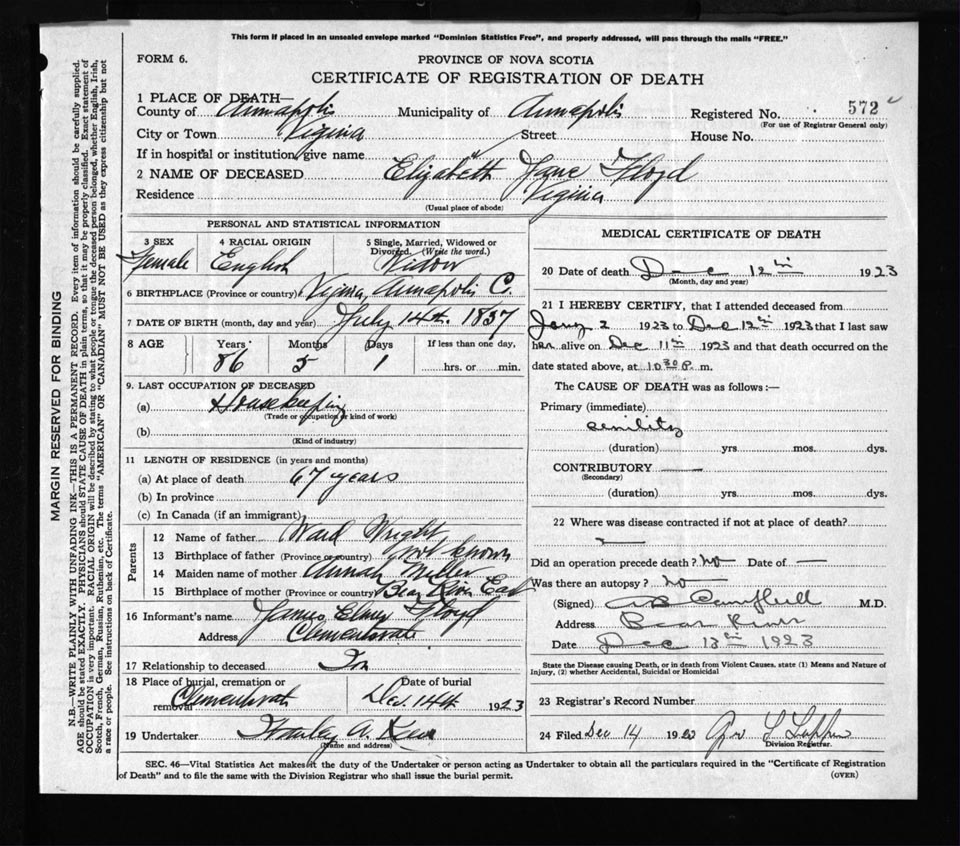 This form if placed in an unsealed envelope marked "Dominion Statistics Free", and properly addressed, will pass through the mails "FREE."
FORM 6.
PROVINCE OF NOVA SCOTIA
CERTIFICATE OF REGISTRATION OF DEATH
1 PLACE OF DEATH—
County of Annapolis Municipality of Annapolis Registered No. 572
(For use of Registrar General only)
City or Town Viginia Street House No.
If in hospital or institution, give name
2 NAME OF DECEASED Elizabeth Jane Floyd
Residence Viginia
(Usual place of abode)
PERSONAL AND STATISTICAL INFORMATION
3 SEX 4 RACIAL ORIGIN 5 Single, Married, Widowed or Divorced. (Write the word.)
Female English Widow
6 BIRTHPLACE (Province or country) Viginia, Annapolis C.
7 DATE OF BIRTH (month, day and year) July 14th. 1837
8 AGE Years Months Days If less than one day,
86 5 1 hrs. or min.
9. LAST OCCUPATION OF DECEASED
(a) Housekeeping
(Trade or occupation or kind of work)
(b)
(Kind of industry)
11 LENGTH OF RESIDENCE (in years and months)
(a) At place of death 67 years
(b) In province
(c) In Canada (if an immigrant)
Parents
12 Name of father Ward Wright
13 Birthplace of father (Province or country) not known
14 Maiden name of mother Annah Miller
15 Birthplace of mother (Province or country) Bear River East
16 Informant's name James Elmer Floyd
Address Clementsvale
17 Relationship to deceased Son
18 Place of burial, cremation or removal Date of burial
Clementsvale Dec. 14th 1923
19 Undertaker A.
(Name and address)
MEDICAL CERTIFICATE OF DEATH
20 Date of death Dec 12th 1923
(Month, day and year)
21 I HEREBY CERTIFY, that I attended deceased from
Jany 2 1923 to Dec 12th 1923 that I last saw
her alive on Dec 11th 1923 and that death occurred on the
date stated above, at 10 30 P. m.
The CAUSE OF DEATH was as follows :—
Primary (immediate)
senility
(duration) yrs. mos. dys.
CONTRIBUTORY —
(Secondary)
(duration) yrs. mos. dys.
22 Where was disease contracted if not at place of death?
Did an operation precede death? No Date of —
Was there an autopsy? No
(Signed) Campbell M.D.
Address Bear River
Date Dec 13th 1923
State the Disease causing Death, or in death from Violent Causes, state (1) Means and Nature of
Injury, (2) whether Accidental, Suicidal or Homicidal
23 Registrar's Record Number
24 Filed Dec 14 1923
Division Registrar.
SEC. 46—Vital Statistics Act makes it the duty of the Undertaker or person acting as Undertaker to obtain all the particulars required in the "Certificate of Registration
of Death" and to file the same with the Division Registrar who shall issue the burial permit.
(OVER)
MARGIN RESERVED FOR BINDING
N.B.—WRITE PLAINLY WITH UNFADING INK—THIS IS A PERMANENT RECORD. Every item of information should be carefully supplied.
AGE should be stated EXACTLY. PHYSICIANS should STATE CAUSE OF DEATH in plain terms, so that it may be properly classified. Exact statement of
OCCUPATION is very important. RACIAL ORIGIN will be described by stating to what people or tongue the deceased person belonged, whether English, Irish,
Scotch, French, German, Russian, Ruthenian, etc. The terms "AMERICAN" OR "CANADIAN" MUST NOT BE USED as they express citizenship but not
a race or people. See instructions on back of Certificate.